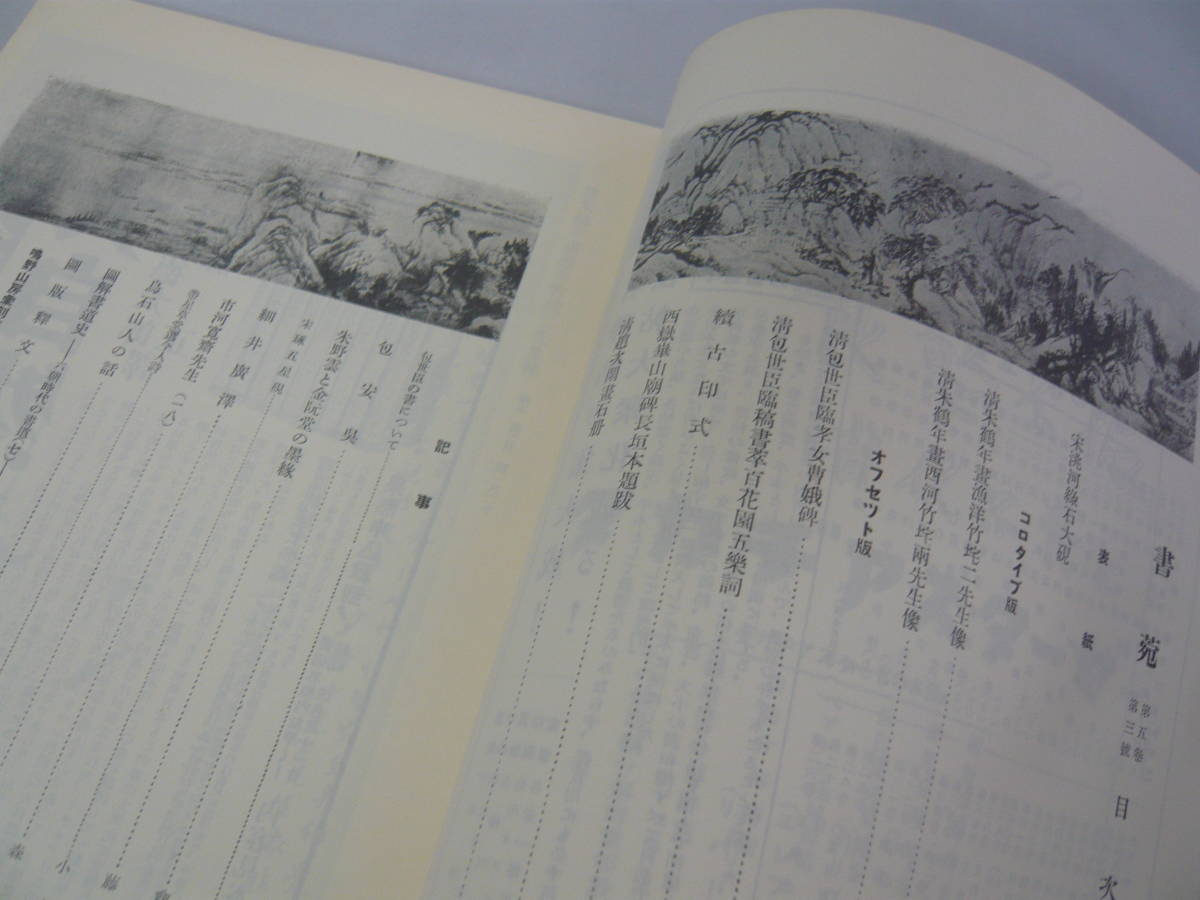 書菀 第五卷 第三號 目次
表紙
宋洮河綠石大硯
コロタイプ版
清朱鶴年畫漁洋竹垞二先生像
清朱鶴年畫西河竹垞兩先生像
オフセット版
清包世臣臨孝女曹娥碑
清包世臣臨稿書萃百花園五樂詞
續古印式
西嶽華山廟碑長垣本題跋
記事
包世臣の書について
包安吳
朱野雲と金阮堂の墨緣
宋琢五星硯
細井廣澤
市河寬齋先生(一八)
烏石山人の話
圖解書道史
圖版釋文
藤
小
森